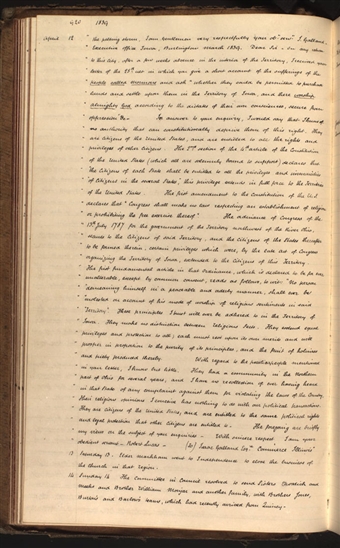 420 1839
April 12 "the petition shown. I am, Gentlemen very respectfully yours etc. I. Galland,
"Executive office Iowa, Burlington March 1839. Dear Sir - On my return
"to this City, after a few weeks absence in the interior of the Territory, I received your
"letter of the 25th ult. in which you give a short account of the sufferings of the
"people called mormons and ask "whether they could be permitted to purchase
"lands and settle upon them in the Territory of Iowa, and there worship
"Almighty God according to the dictates of their own consciences, secure from
"oppression &c. In answer to your enquiry, I would say that I know of
"no authority that can constitutionally deprive them of this right. They
"are Citizens of the United States, and are entitled to all the rights and
"privileges of other Citizens. The 2nd section of the 4th article of the Constitution
"of the United States (which all are solemnly bound to support) declares that
"the Citizens of each State shall be entitled to all the privileges and immunities
"of Citizens in the several States," this privilege extends in full force to the Territories
"of the United States. The first amendment to the Constitution of the U.S.
"declares that "Congress shall make no law respecting an establishment of religion
"or prohibiting the free exercise thereof." The ordinance of Congress of the
"13th July 1787 for the government of the Territory northwest of the River Ohio,
"secures to the Citizens of said Territory, and the Citizens of the States thereafter
"to be formed therein, certain privileges which were, by the late Act of Congress
"organizing the Territory of Iowa, extended to the Citizens of this Territory.
"The first fundamental article in that Ordinance, which is declared to be for ever
"unalterable, except by common consent, reads as follows, to wit: "No person
"demeaning himself in a peaceable and orderly manner, shall ever be
"molested on account of his mode of worship or religious sentiments in said
"Territory." These principles I trust will ever be adhered to in the Territory of
"Iowa. They make no distinction between religious sects. They extend equal
"privileges and protection to all; each must rest upon its own merits and will
"prosper in proportion to the purity of its principles, and the fruit of holiness
"and piety produced thereby. With regard to the peculiar people mentioned
"in your letter, I know but little. They had a community in the Northern
"part of Ohio for several years, and I have no recollection of ever having heard
"in that State of any complaint against them for violating the laws of the Country.
"Their religious opinions I conceive has nothing to do with our political transactions.
"They are Citizens of the United States, and are entitled to the same political rights
"and legal protection that other Citizens are entitled to. The foregoing are briefly
"my views on the subject of your enquiries - With sincere respect I am your
"obedient servant - Robert Lucas - [to] Isaac Galland Esqre. Commerce Illinois"
13 Elder markham went to Independence to close the business of
the church in that region.
14 Sunday 14 The Committee in Council resolved to send Sisters
and Brother William and another family, with Brothers Jones,
Burton's and teams, which had recently arrived from Quincy.